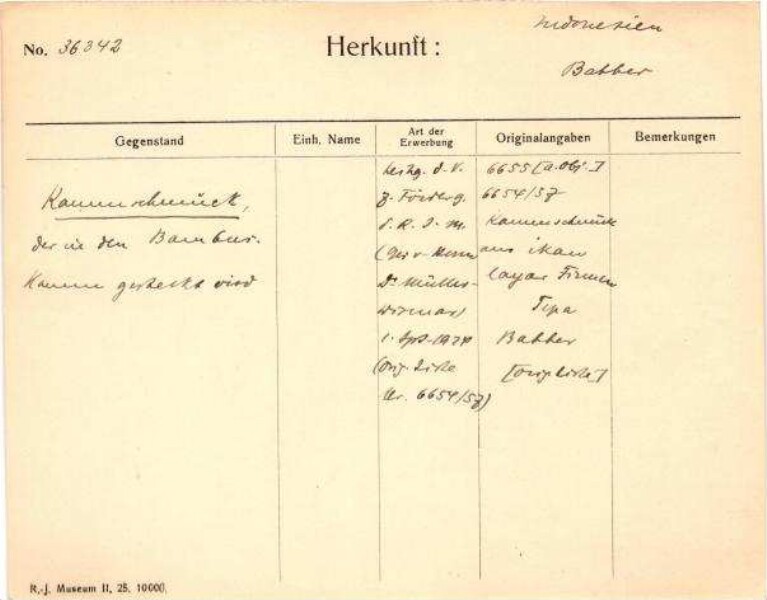 No. 36342
Herkunft:
Indonesien
Babber
Gegenstand
Einh. Name
Art der Erwerbung
Originalangaben
Bemerkungen
Kammschmuck,
der in den Bambus-
Kamm gesteckt wird
d. V.
z. Förderg.
d. R. J. M.
(
Dr Müller-
Wismar)
1. Spt. 1924
(Orig. Liste
Nr. 6654/57)
6655 [a. Obj.]
6654/57
Kammschmuck
aus ikan
layar
Tepa
Babber
[Orig Liste]
R.-J. Museum II, 25. 10000.